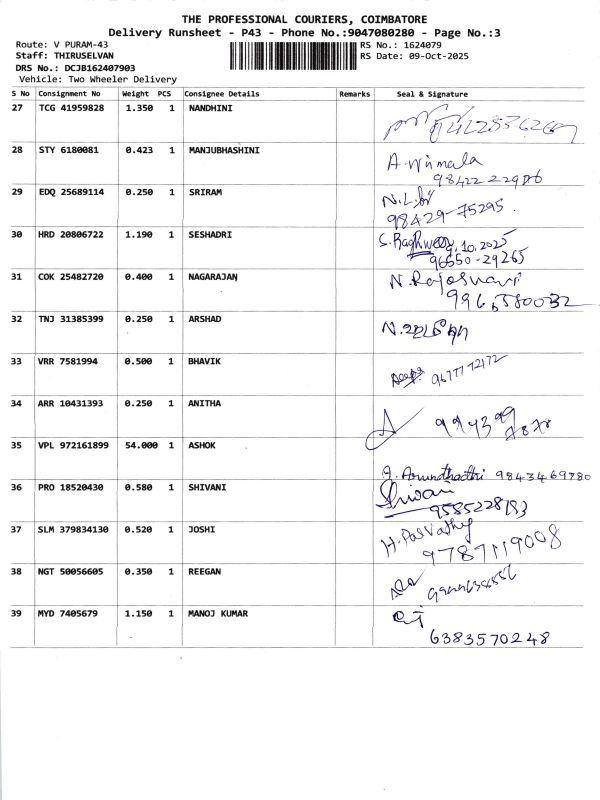 THE PROFESSIONAL COURIERS, COIMBATORE
Delivery Runsheet - P43 - Phone No.:9047080280 - Page No.:3
Route: V PURAM-43 RS No.: 1624079
Staff: THIRUSELVAN RS Date: 09-Oct-2025
DRS No.: DCJB162407903
Vehicle: Two Wheeler Delivery
S No Consignment No Weight PCS Consignee Details Remarks Seal & Signature
27 TCG 41959828 1.350 1 NANDHINI
28 STY 6180081 0.423 1 MANJUBHASHINI
A. Nirmala
98422 22986
29 EDQ 25689114 0.250 1 SRIRAM
98429-75295
30 HRD 20806722 1.190 1 SESHADRI
9.10.2025
96550-29265
31 COK 25482720 0.400 1 NAGARAJAN
N. Rajeswari
32 TNJ 31385399 0.250 1 ARSHAD
33 VRR 7581994 0.500 1 BHAVIK
9677772172
34 ARR 10431393 0.250 1 ANITHA
99439
7878
35 VPL 972161899 54.000 1 ASHOK
Arundhathi 9843469780
36 PRO 18520430 0.580 1 SHIVANI
Shivani
9585228193
37 SLM 379834130 0.520 1 JOSHI
H. Parvathy
9787119008
38 NGT 50056605 0.350 1 REEGAN
39 MYD 7405679 1.150 1 MANOJ KUMAR
6383570248